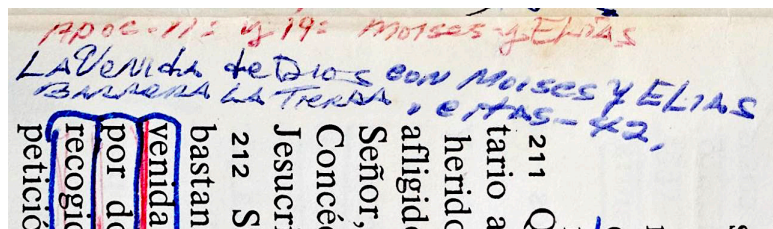 Apoc-11: y 19: Moises-y Elias
LA Venida de Dios con Moises y ELIAS
BARRERA LA TIERRA, e Mas-42,
211 Q
tario a
herido
afligido
Señor,
Concéd
Jesucri
212 S
bastan
venida
por do
recogid
petició